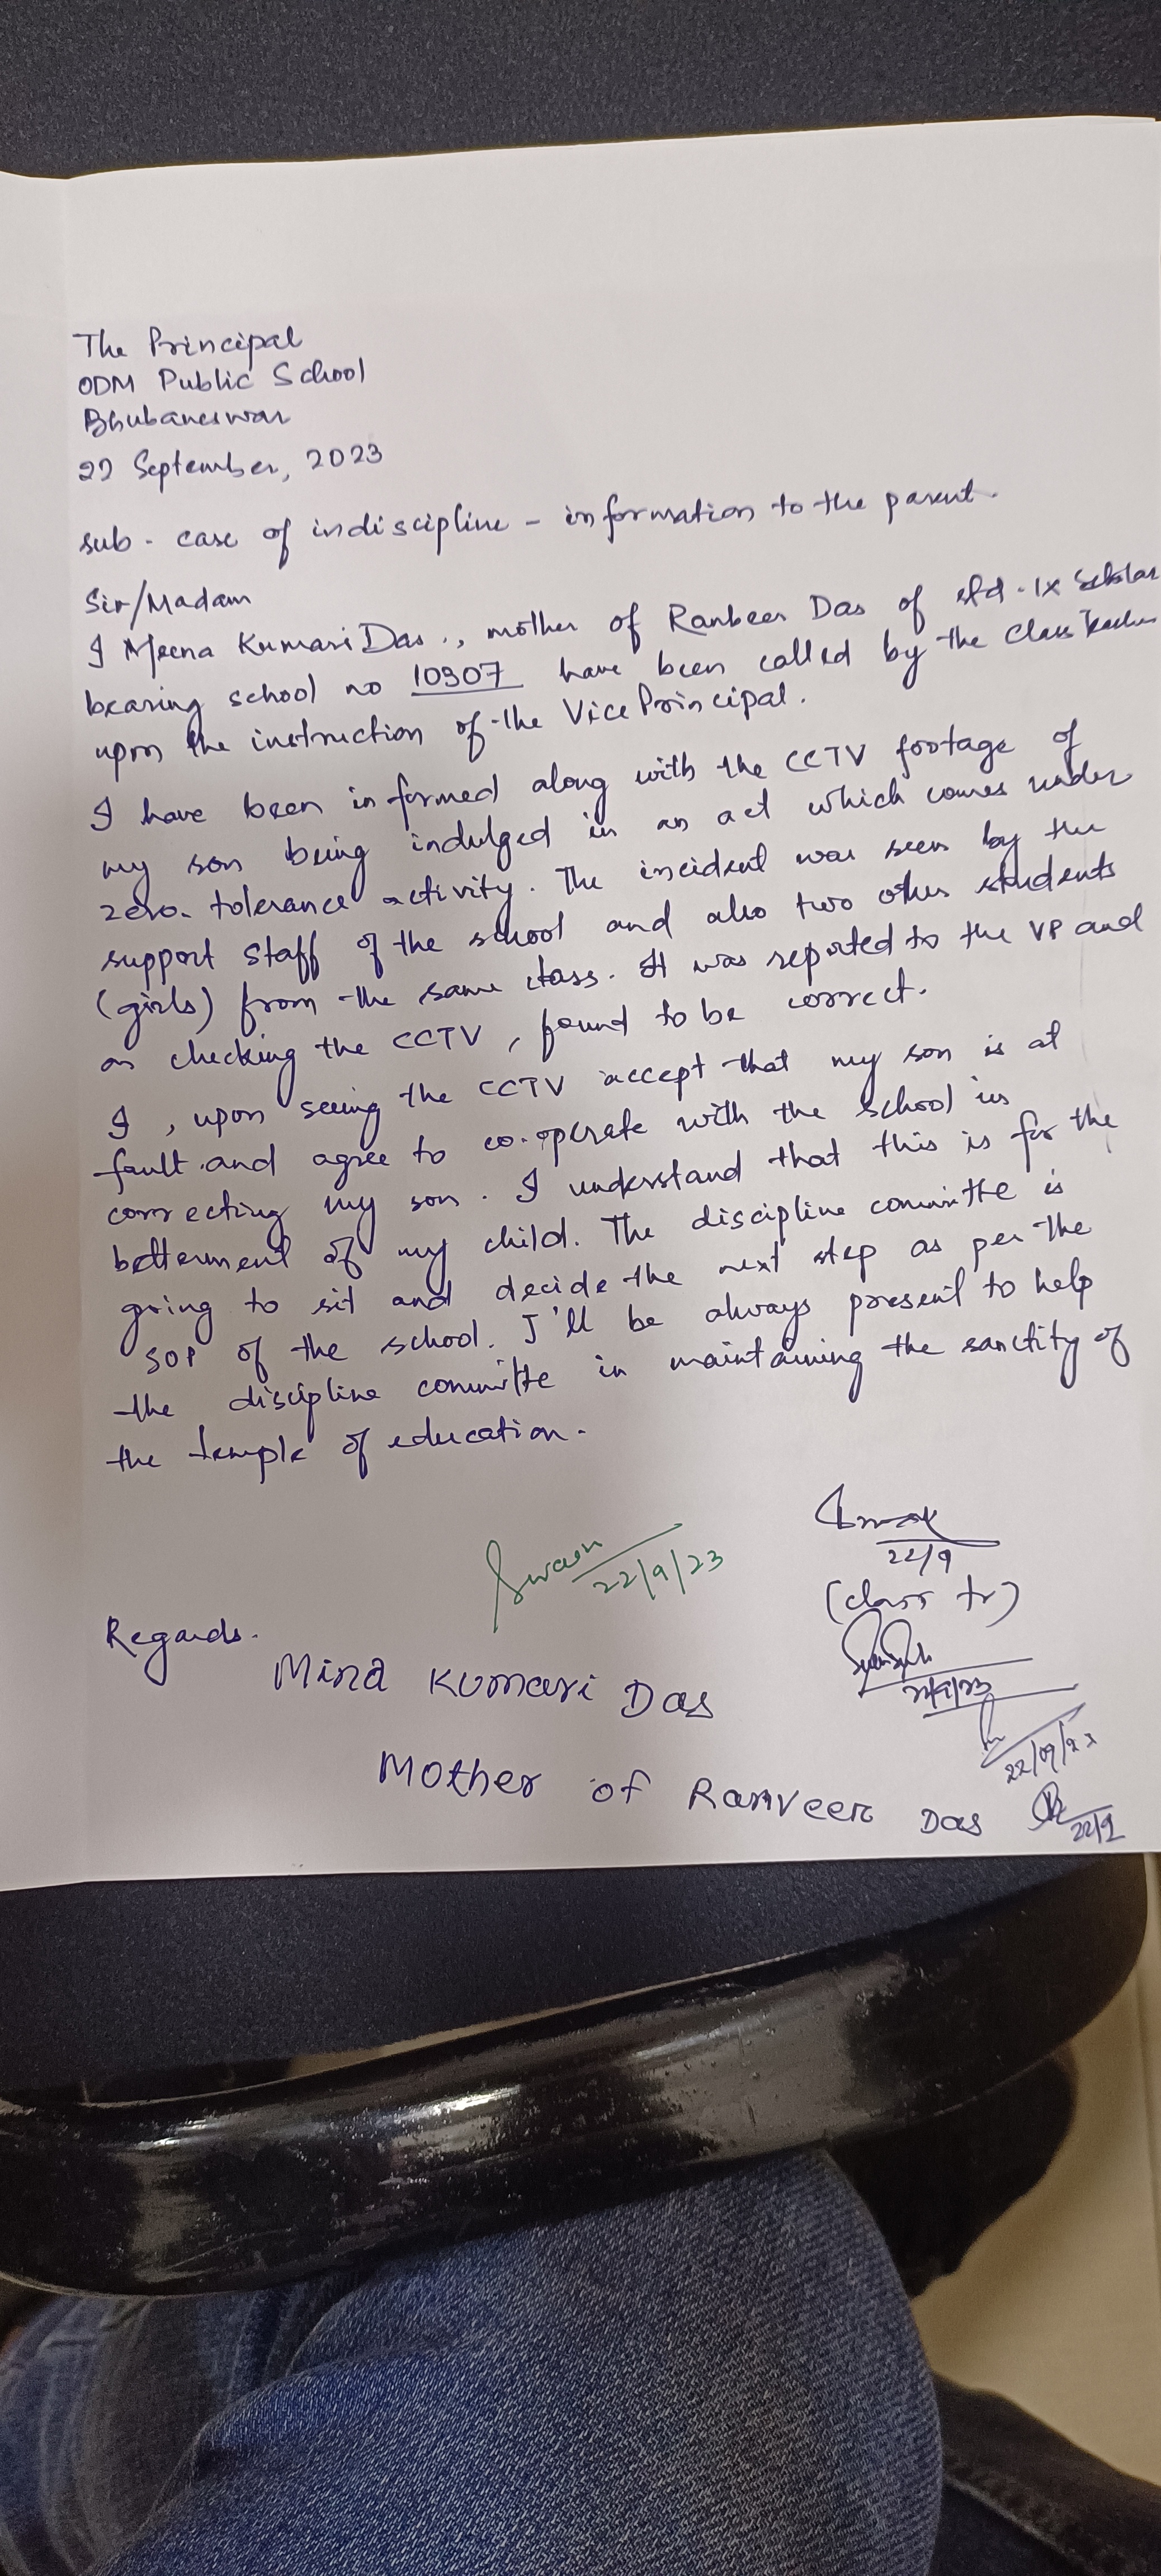 The Principal
ODM Public School
Bhubaneswar
22 September, 2023
sub - case of indiscipline - information to the parent.
Sir/Madam
I Meena Kumari Das., mother of Ranbeer Das of std - IX Scholar
bearing school no 10307 have been called by the Class Teacher
upon the instruction of the Vice Principal.
I have been informed along with the CCTV footage of
my son being indulged in an act which comes under
zero-tolerance activity. The incident was seen by the
support staff of the school and also two other students
(girls) from the same class. It was reported to the VP and
on checking the CCTV, found to be correct.
I, upon seeing the CCTV accept that my son is at
fault and agree to co-operate with the school in
correcting my son. I understand that this is for the
betterment of my child. The discipline committe is
going to sit and decide the next step as per the
SOP of the school. I'll be always present to help
the discipline committe in maintaining the sanctity of
the temple of education.
22/9
Swain 22/9/23
(class tr)
Regards.
Mina Kumari Das
22/9/23
22/09/23
Mother of Ranveer Das
22/9